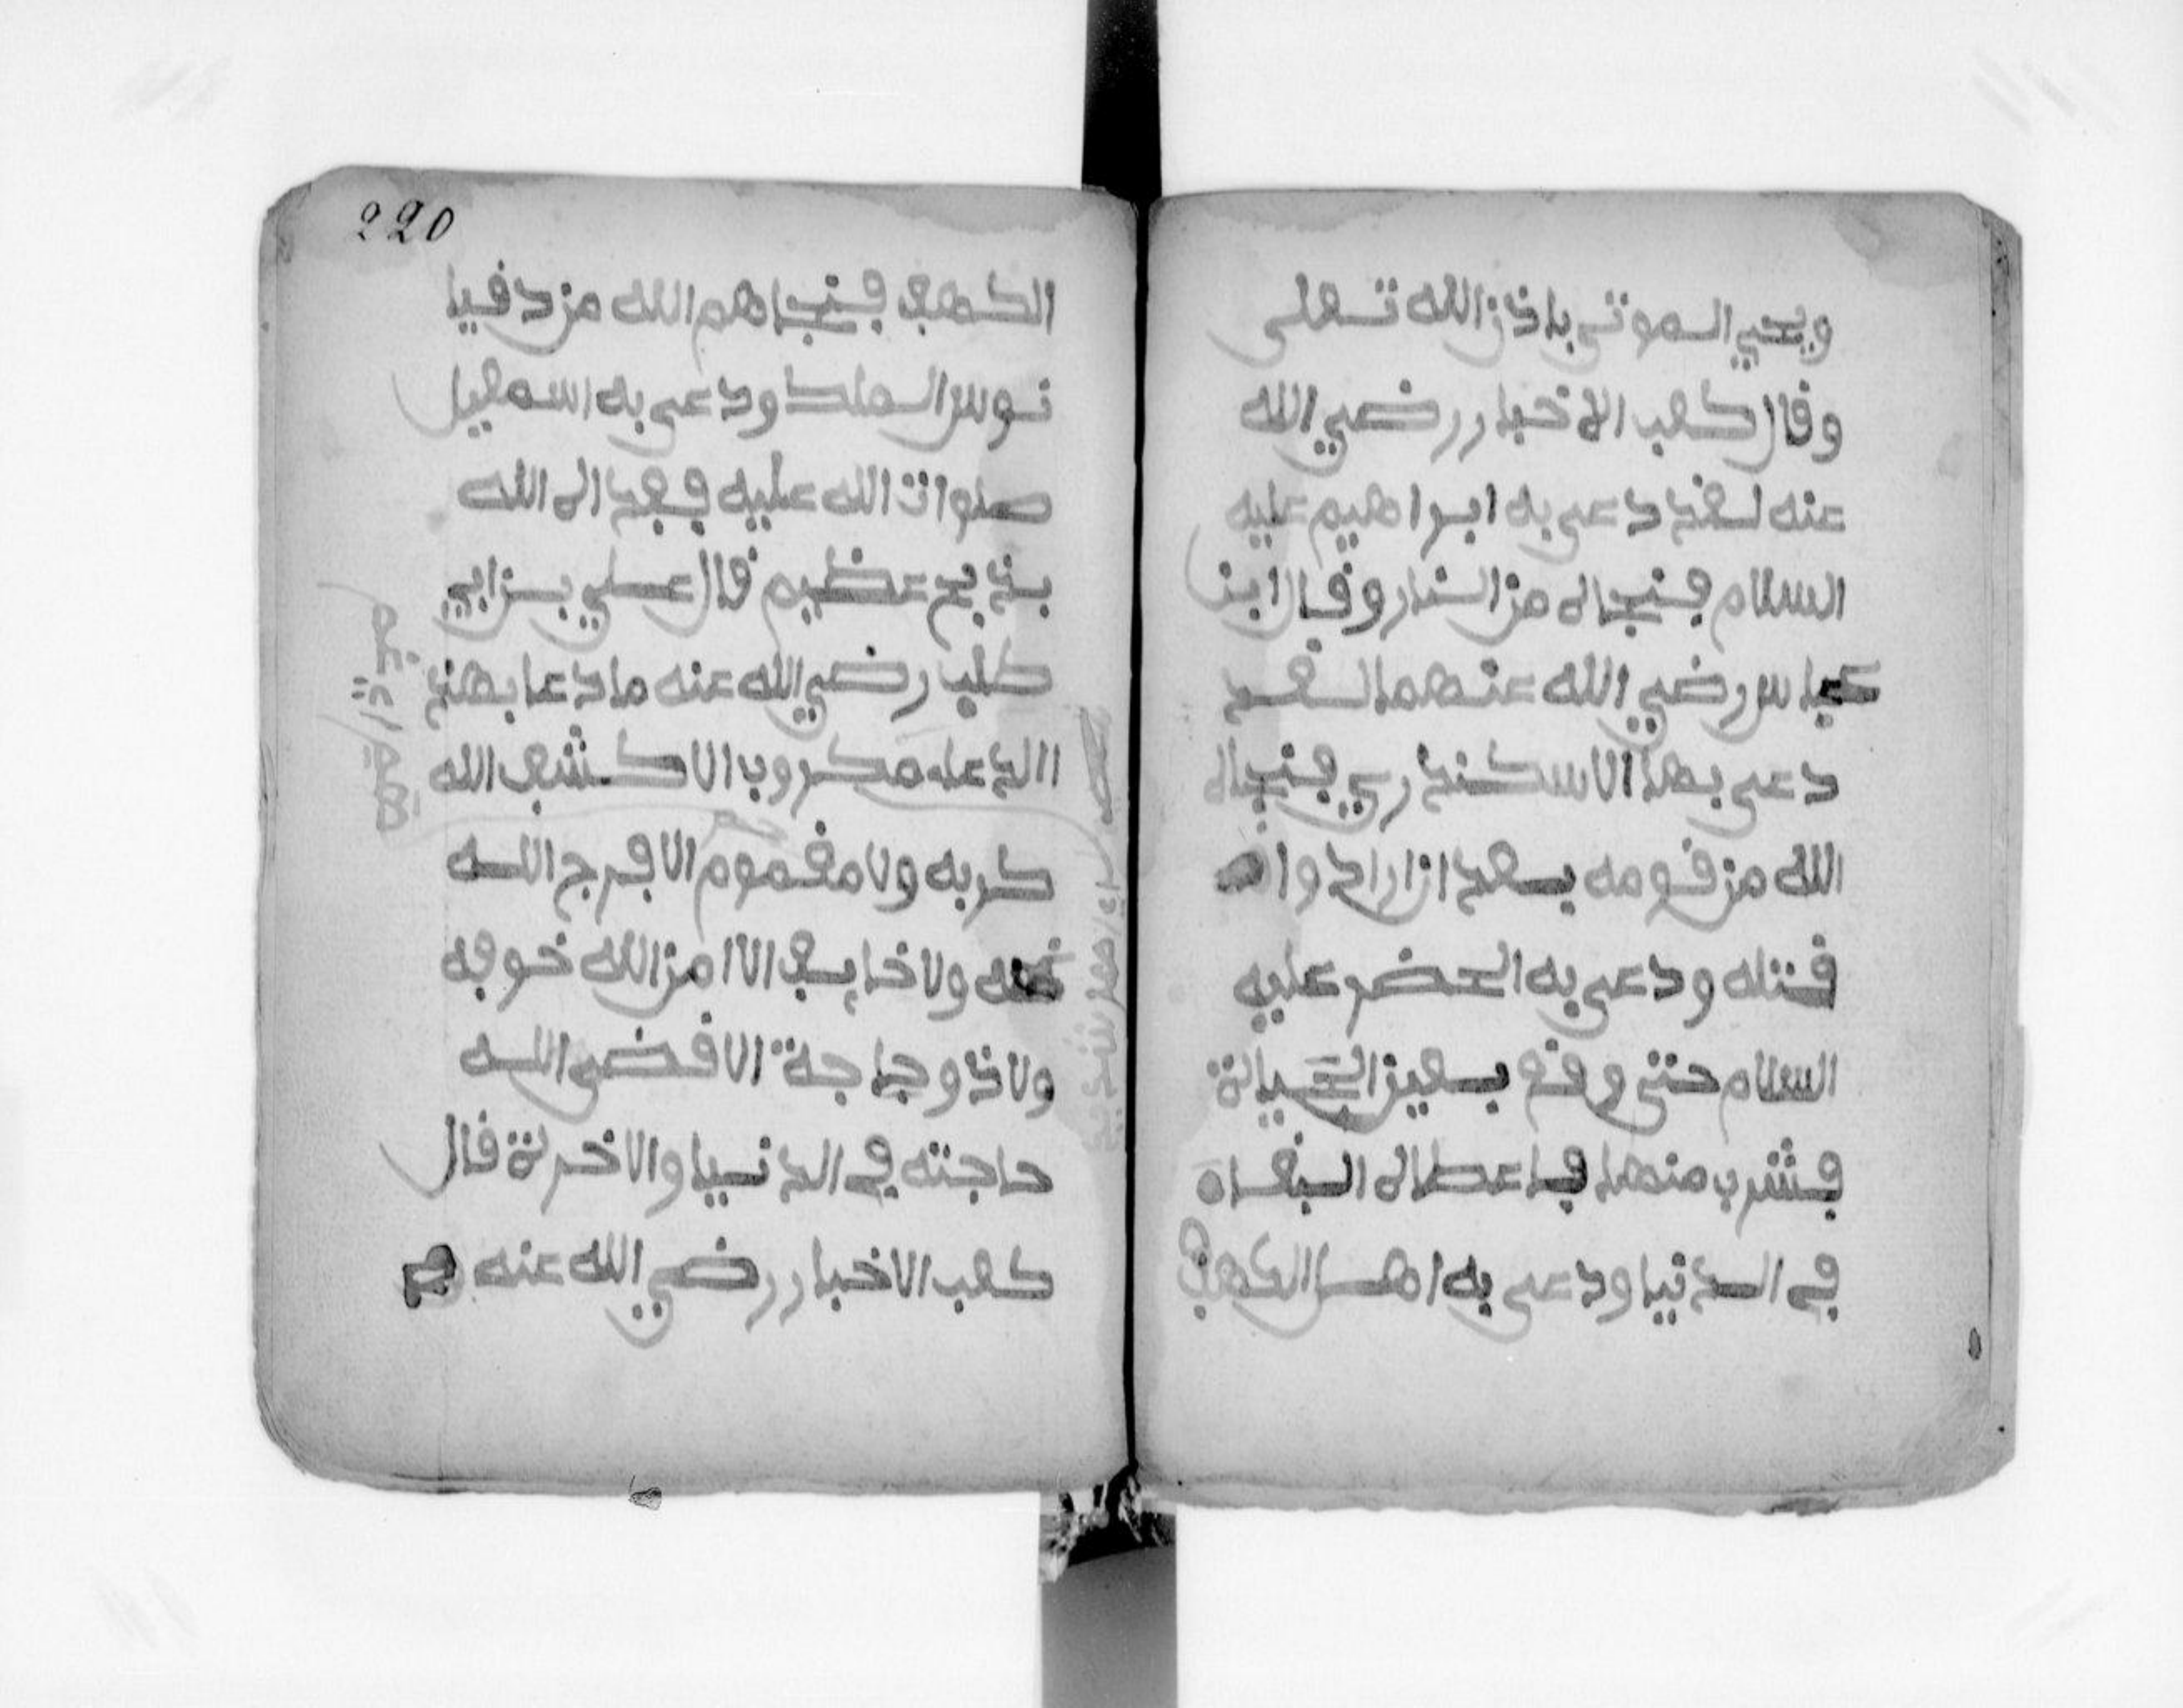 ويحيي الموتى باذن الله تعلى
وقال كعب الاخبار رضي الله
عنه لقد دعى به ابراهيم عليه
السلام فنجاه من النار وقال ابن
عباس رضي الله عنهما لقد
دعى بها الاسكندري فنجاه
الله من قومه بعد ان ارادوا
قتله ودعى به الخضر عليه
السلام حتى وقع بعين الحياة
فشرب منها فاعطاه البقاه
في الدنيا ودعى به اهل الكهف
220
الكهف فنجاهم الله من دقيا
نوس الملك ودعى به اسمعيل
صلوات الله عليه ففداه الله
بذبح عظيم قال علي بن ابي
طلب رضي الله عنه ما دعا بهذ
االدعاء مكروب الا كشف الله
كربه ولا مغموم الا فرج الله
غمه ولا خايف الا امن الله خوفه
ولا ذو حاجة الا قضى الله
حاجته في الدنيا والاخرة قال
كعب الاخبار رضي الله عنه